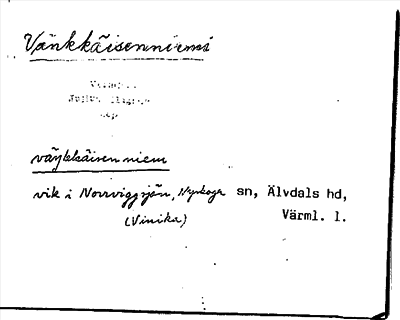 Vänkkäisenniemi
väŋkkäisen niem
vik i Norrviggsjön, Nyskoga sn, Älvdals hd,
(Vinika) Värml. l.